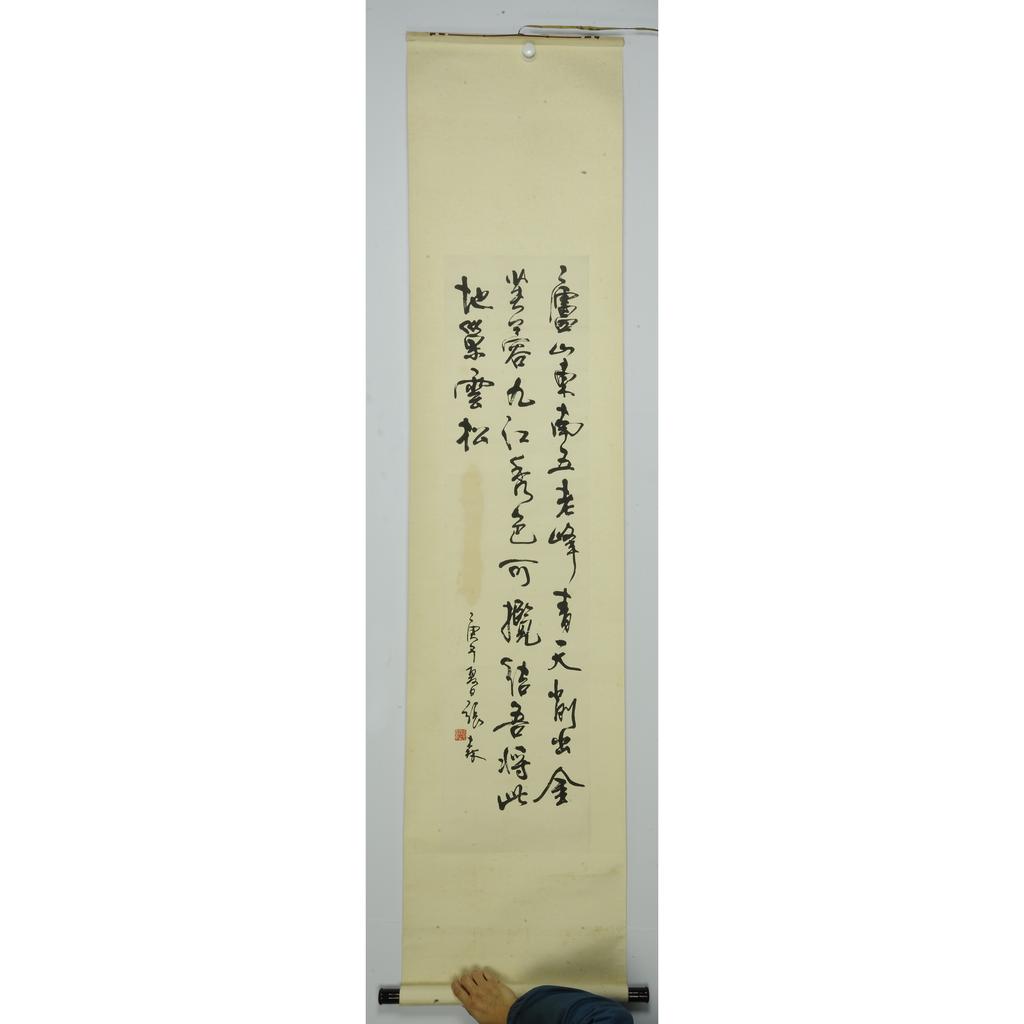 廬山東南五老峰青天削出金
芙蓉九江秀色可攬結吾將此
地巢雲松
庚午夏日張森